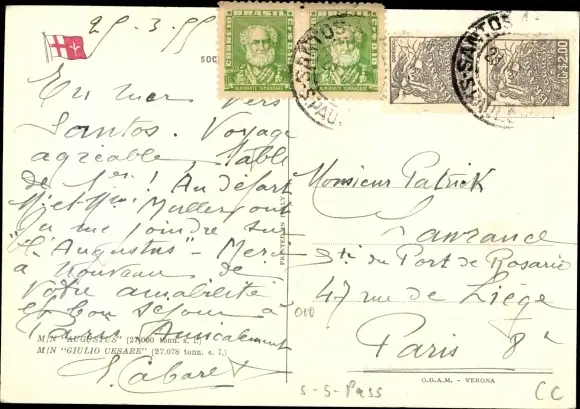 29-3-55
SOC
BRASIL CORREIO
ALMIRANTE TAMANDARÉ
BRASIL CORREIO
ALMIRANTE TAMANDARÉ
SANTOS
S. PAULO
SANTOS
S. PAULO
CR$ 2,00
En mer vers
Santos. Voyage
agréable, table
de 1er! Au départ
M. et Mme Muller ont
pu me joindre sur
"l'Augustus" - Merci
à nouveau de
votre amabilité
et bon séjour à
Paris Amicalement
S. Cabaret
M/N "AUGUSTUS" (27.090 tonn. s. l.)
M/N "GIULIO CESARE" (27.078 tonn. s. l.)
PRINTED IN ITALY
Monsieur Patrick
Lawrance
Sté du Port de Rosario
47 rue de Liège
Paris 8e
O.G.A.M. - VERONA
010
S-S-Pass
CC